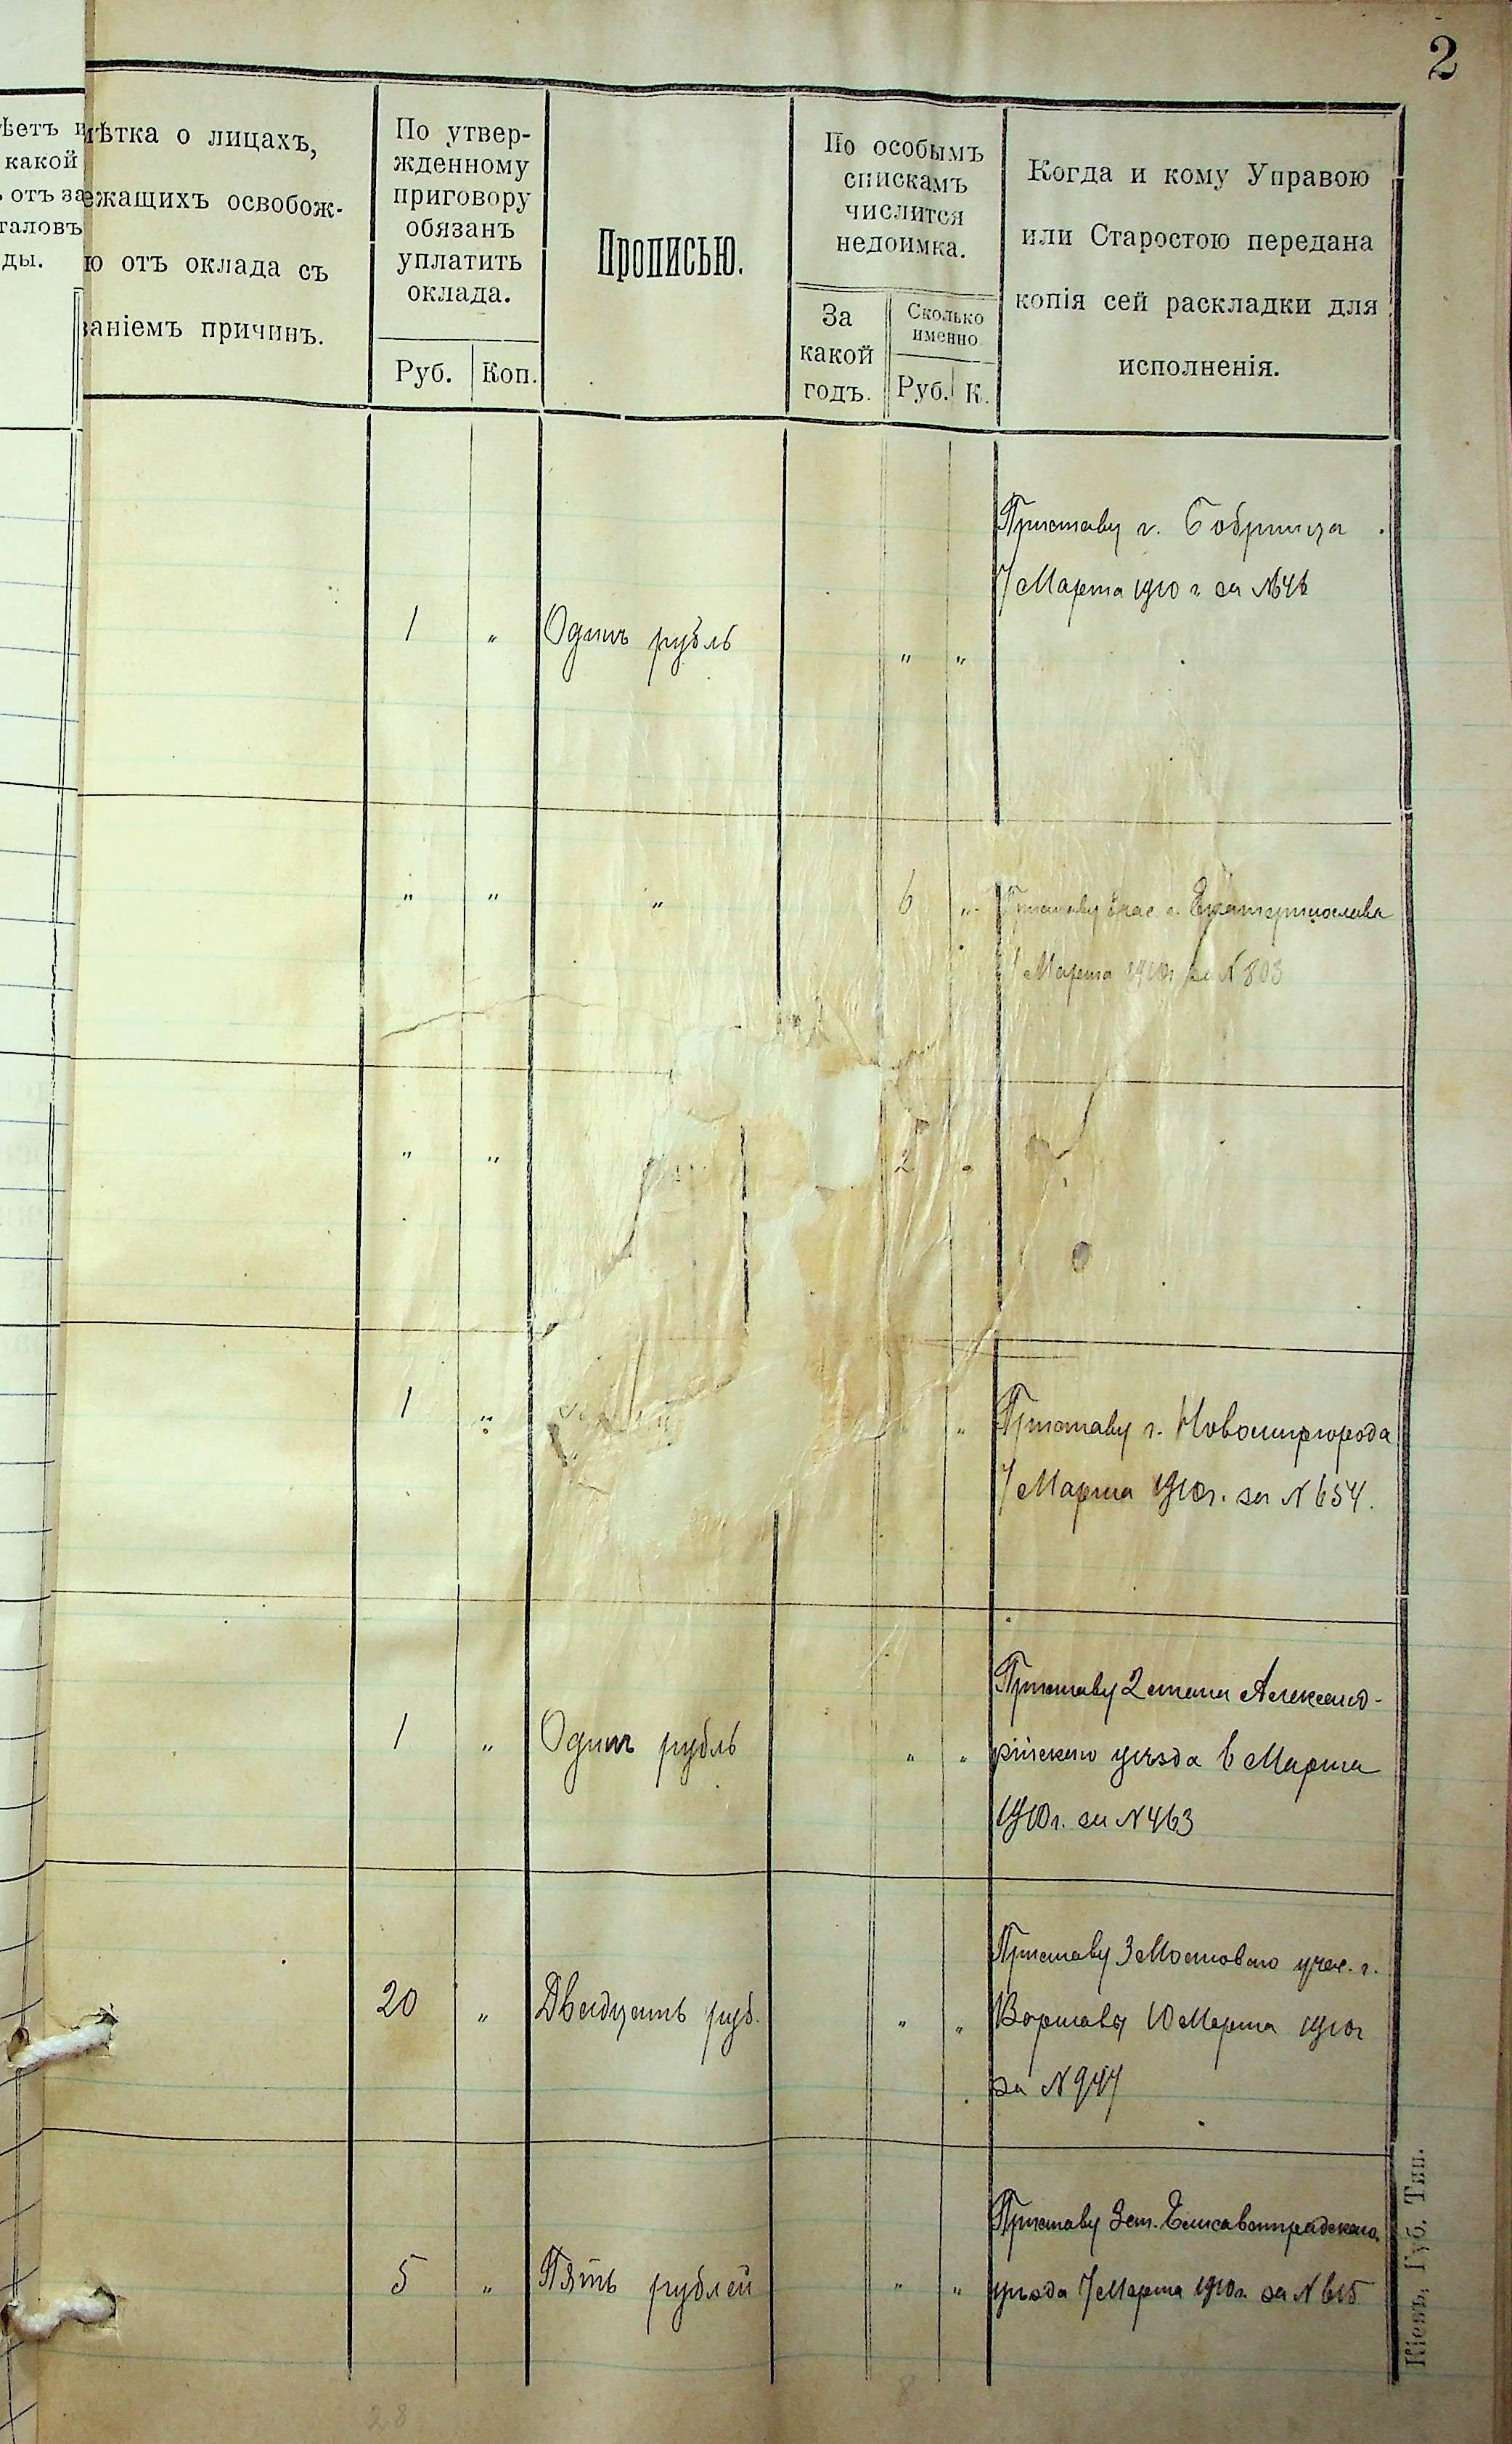 2
ѣетъ и
какой
отъ за
галовъ
ды.
мѣтка о лицахъ,
ежащихъ освобож-
ю отъ оклада съ
заніемъ причинъ.
По утвер-
жденному
приговору
обязанъ
уплатить
оклада.
Руб. Коп.
Прописью.
По особымъ
спискамъ
числится
недоимка.
За
какой
годъ.
Сколько
именно
Руб. К.
Когда и кому Управою
или Старостою передана
копія сей раскладки для
исполненія.
Приставу г. Бобринца
7 Марта 1910 г. за №
1 " Одинъ рубль " "
" " " 6 " Приставу г. Екатеринослава
Марта 1910 г. за N 803
" " 2
1 " " Приставу г. Новомиргорода
7 Марта 1910 г. за N 654.
Приставу 2 стана Александ-
1 " Одинъ рубль " " рійскаго уѣзда 6 Марта
1910 г. за N 463
Приставу 3 Мостоваго учас. г.
20 " Двадцать руб. " " Варшавы 10 Марта 1910 г
за N
Приставу 3 ст. Елисаветградскаго
5 " Пять рублей " " уѣзда 7 Марта 1910 г. за N 615
28 8
Кіевъ, Губ. Тип.